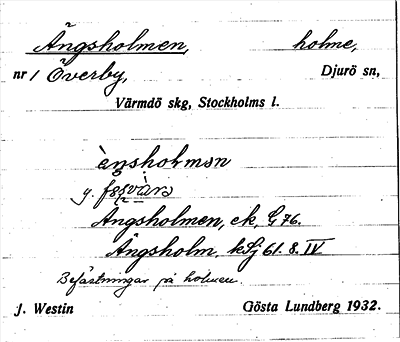 Ängsholmen, holme,
nr 1 Överby, Djurö sn,
Värmdö skg, Stockholms l.
èŋshoƚmən
Ängsholmen, ek, G 76.
Ängsholm. kSj 61. 8. IV
Befästningar på holmen.
J. Westin Gösta Lundberg 1932.